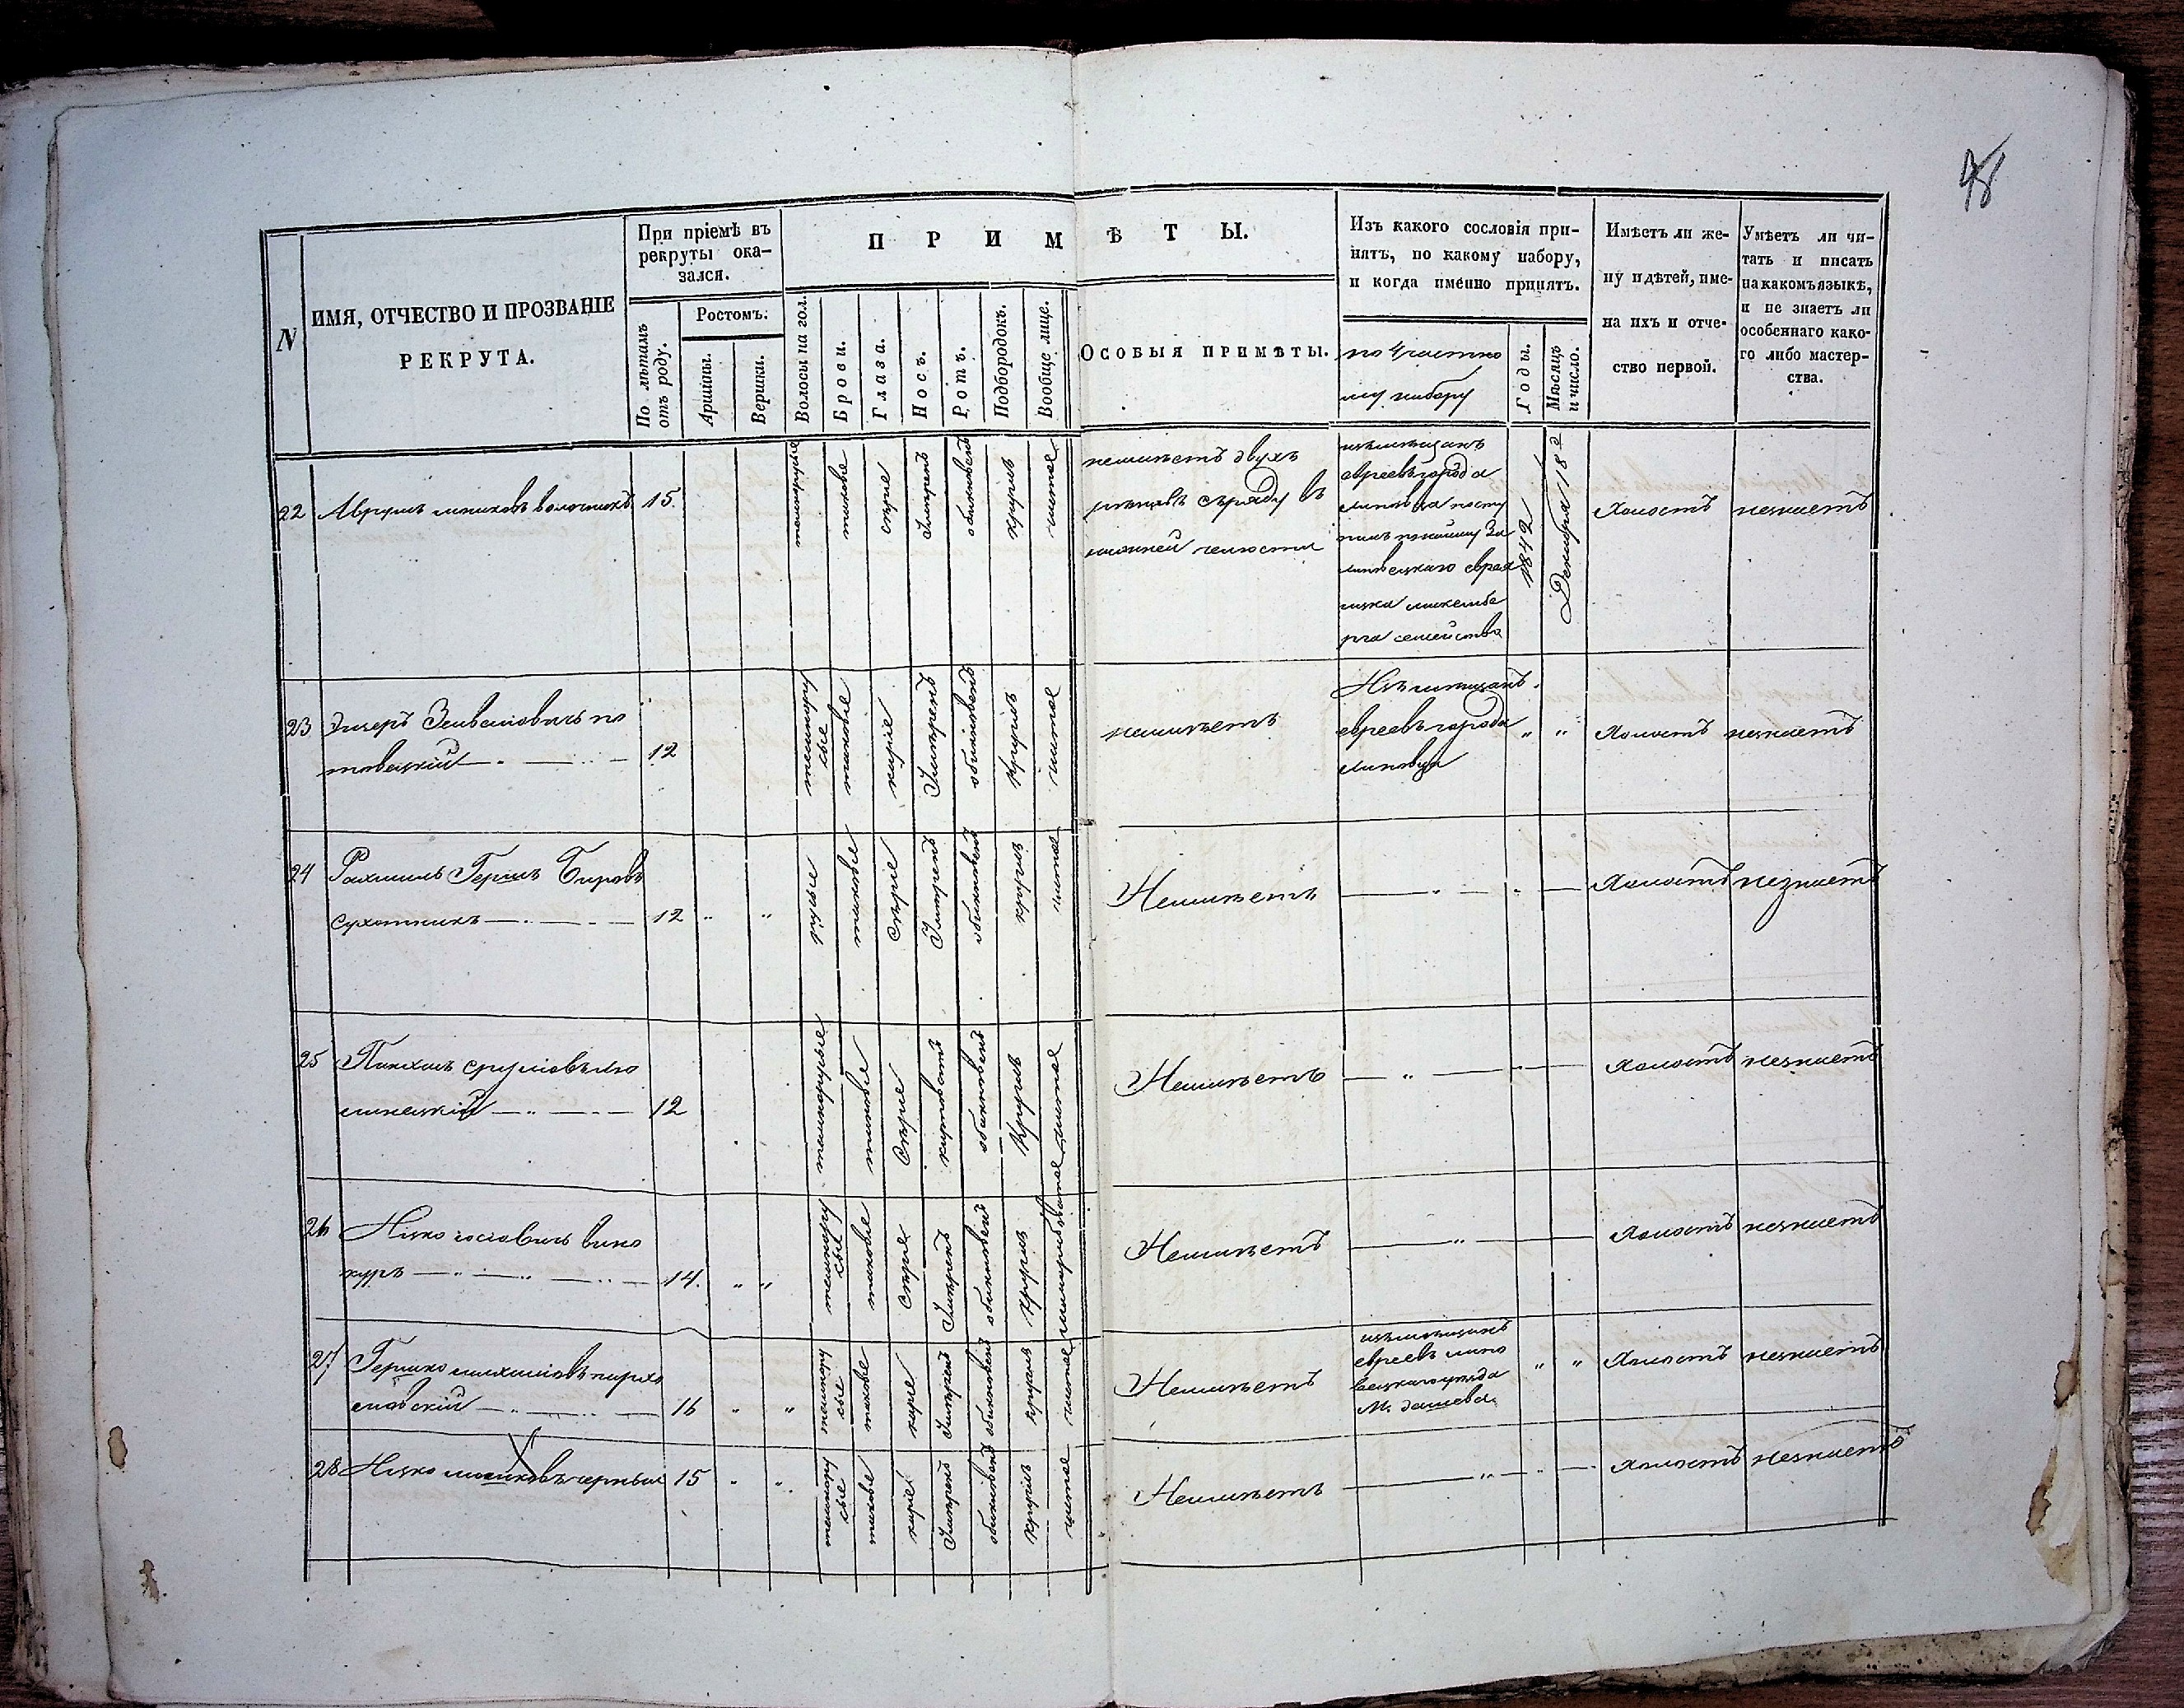 48
N
ИМЯ, ОТЧЕСТВО И ПРОЗВАНІЕ
РЕКРУТА.
При пріемѣ въ
рекруты ока-
зался.
По лѣтамъ
отъ роду.
Ростомъ.
Аршины.
Вершки.
П Р И М Ѣ Т Ы.
Волосы на гол.
Брови.
Глаза.
Носъ.
Ротъ.
Подбородокъ.
Вообще лице.
ОСОБЫЯ ПРИМѢТЫ.
Изъ какого сословія при-
нятъ, по какому набору,
и когда именно принятъ.
по 4 частно
му набору
Годы.
Мѣсяцъ
и число.
Имѣетъ ли же-
ну и дѣтей, име-
на ихъ и отче-
ство первой.
Умѣетъ ли чи-
тать и писать
на какомъ языкѣ,
и не знаетъ ли
особеннаго како-
го либо мастер-
ства.
22
Аврумъ
15.
темнорусые
таковые
сѣрые
умѣренъ
обыкновенъ
круглъ
чистое
неимѣетъ двухъ
съряду въ
челюсти
изъ мѣщанъ
евреевъ города
Липовца посту
еврея
семейства
1842
Декабря 18
Холостъ
незнаетъ
23
12
темнору
сые
таковые
карие
Умѣренъ
обыкновенъ
Круглъ
чистое
неимѣетъ
Изъ мѣщанъ
евреевъ города
Липовца
" "
Холостъ
незнаетъ
24
Рахмиль Герш Беровъ
сухотникъ
12
" "
русые
таковые
Сѣрые
Умѣренъ
обыкновенъ
круглъ
чистое
Неимѣетъ
Холостъ
незнаетъ
25
Пинхасъ сруліовъ
12
темнорусые
таковые
Сѣрые
обыкновенъ
Круглъ
чистое
Неимѣетъ
Холостъ
незнаетъ
26
Ицко іосіовичь вино
куръ
14.
" "
темнору
сые
таковые
Сѣрые
Умѣренъ
обыкновенъ
Круглъ
Неимѣетъ
Холостъ
незнаетъ
27
Гершко
16
" "
темнору
сые
таковые
карие
Умѣренъ
обыкновенъ
круглъ
чистое
Неимѣетъ
изъ мѣщанъ
евреевъ липо
вецкаго уѣзда
М. дашева.
" "
Холостъ
незнаетъ
28
Ицко мошковъ черный
15
" "
темнору
сые
таковые
карие
Умѣренъ
обыкновенъ
Круглъ
чистое
Неимѣетъ
Холостъ
незнаетъ